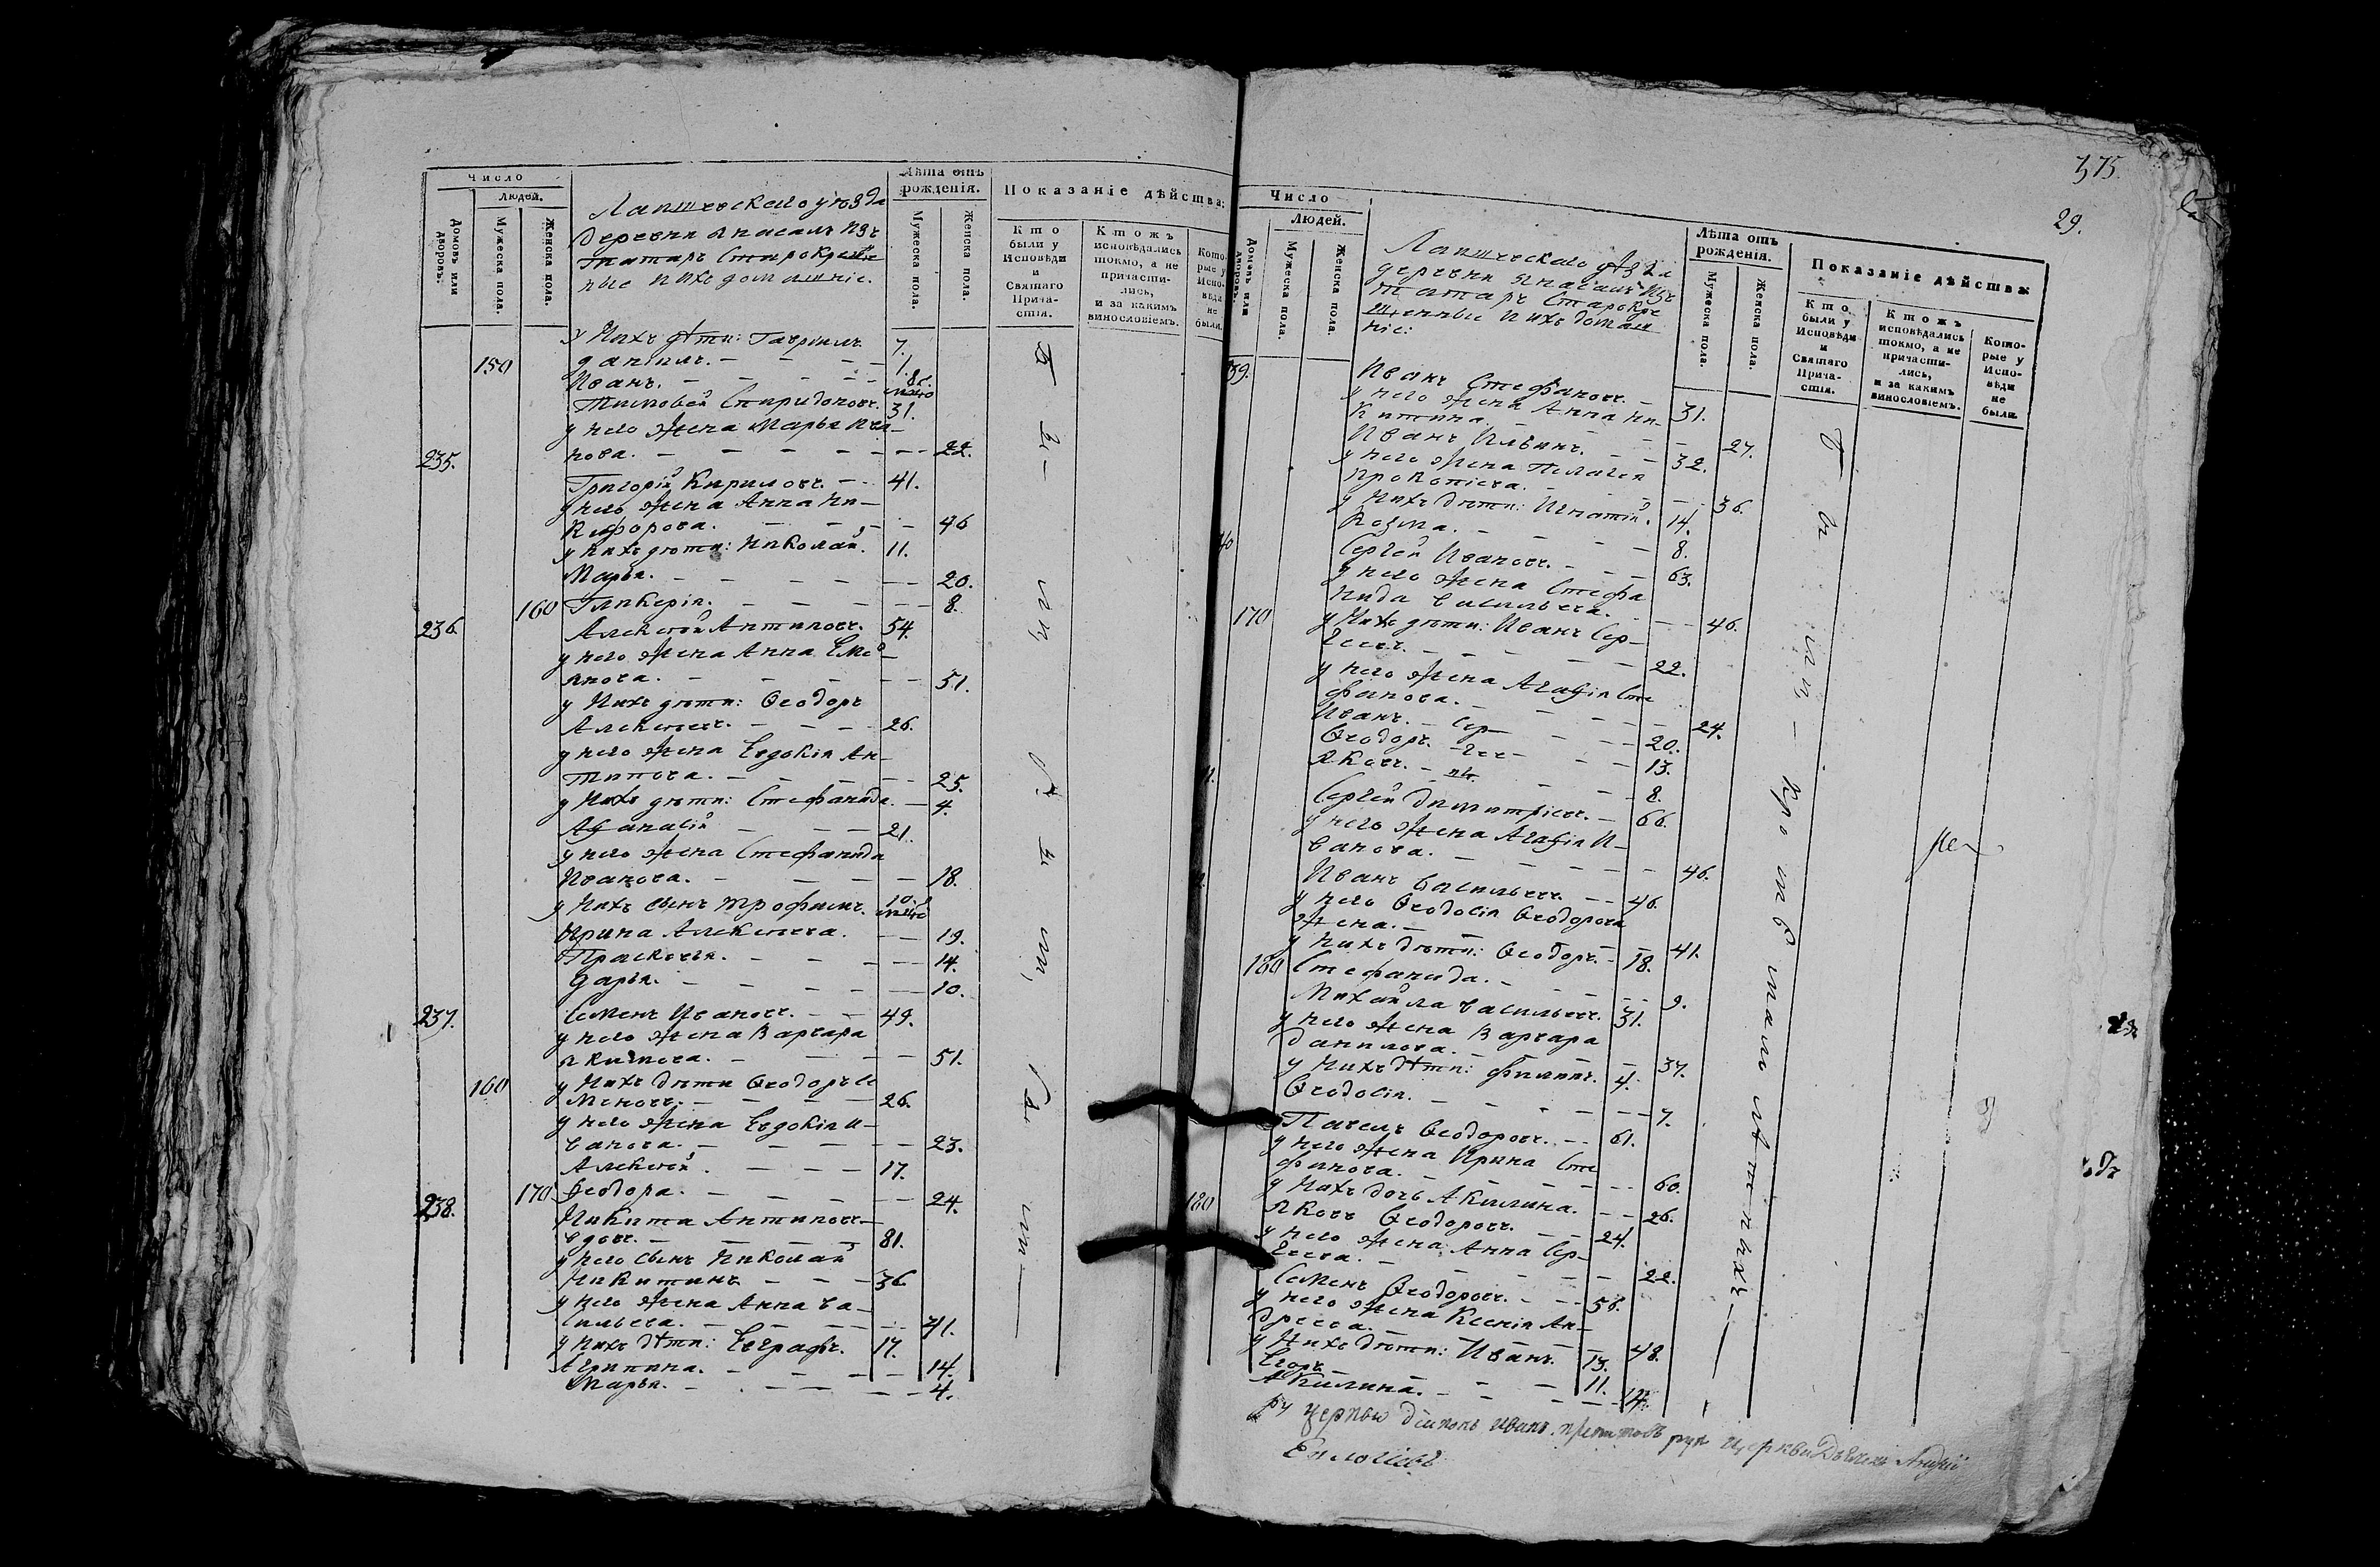 Число
Людей.
Домовъ или дворовъ.
Мужеска пола.
Женска пола.
Лаишевскаго уѣзда
деревни Янасалъ изъ
татаръ Старокреще
ные и ихъ домашніе.
Лѣта отъ
рожденія.
Мужеска пола.
Женска пола.
Показаніе дѣйства:
Кто были у Исповѣди и Святаго Причастія.
Ктожъ исповѣдались токмо, а не причастились, и за какимъ винословіемъ.
Которые у Исповѣди не были.
У нихъ дѣти: Гавріилъ 7.
150 Даніилъ. 1.
Иванъ.
Тимофей Спиридоновъ. 31.
у него жена Марья
нова. 22.
235.
Григорій Кириловъ. 41.
у него жена Анна Ни-
кифорова. 46
у нихъ дѣти: Николай. 11.
Марья. 20.
160 Гликерія. 8.
236. Алексѣй Антиповъ. 54.
у него жена Анна Еме-
лянова. 51.
у нихъ дѣти: Ѳеодоръ
Алексѣевъ. 26.
у него жена Евдокія Ан-
типова. 25.
у нихъ дѣти: Стефанида. 4.
Аѳанасій 21.
у него жена Стефанида
Иванова. 18.
у нихъ сынъ Трофимъ. 10.
Ирина Алексѣева. 19.
Прасковья. 14.
Дарья. 10.
237. Семенъ Ивановъ. 49.
у него жена Варвара
Якимова. 51.
160 у нихъ дѣти Ѳеодоръ Се
меновъ. 26.
у него жена Евдокія И-
ванова. 23.
Алексѣй. 17.
170 Ѳеодора. 24.
238. Никита Антиповъ
вдовъ. 81.
у него сынъ Николай
Никитинъ 36.
у него жена Анна Ва-
сильева. 41.
у нихъ дѣти: Евграфъ. 17.
Агрипина. 14.
Марья. 4.
375.
29.
Число
Людей.
Домовъ или дворовъ.
Мужеска пола.
Женска пола.
Лаишевскаго уѣзда
деревни Янасалъ изъ
татаръ Старокре
щенные и ихъ домаш
ніе:
Лѣта отъ
рожденія.
Мужеска пола.
Женска пола.
Показаніе дѣйства:
Кто были у Исповѣди и Святаго Причастія.
Ктожъ исповѣдались токмо, а не причастились, и за какимъ винословіемъ.
Которые у Исповѣди не были.
39. Иванъ Стефановъ. 31.
у него жена Анна Ни-
китина. 27.
Иванъ Ильинъ. 32.
у него жена Пелагея
Прокопіева. 36.
у нихъ дѣти: Игнатій. 14.
Козма. 8.
40 Сергей Ивановъ. 63.
у него жена Стефа
нида Васильева. 46.
170 у нихъ дѣти: Иванъ Сер-
геевъ. 22.
у него жена Агафія Сте
фанова. 24.
Иванъ. 20.
Ѳеодоръ. 13.
Яковъ. 8.
Сергей Димитріевъ. 66.
у него жена Агафія И-
ванова. 46.
Иванъ Васильевъ. 46.
у него Ѳеодосія Ѳеодорова
жена. 41.
у нихъ дѣти: Ѳеодоръ. 18.
180 Стефанида. 9.
Михайла Васильевъ. 31.
у него жена Варвара
Данилова. 37.
у нихъ дѣти: Филипъ. 4.
Ѳеодосія. 7.
Павелъ Ѳеодоровъ. 61.
у него жена Ирина Сте
фанова. 60.
у нихъ дочь Акилина. 26.
180 Яковъ Ѳеодоровъ. 24.
у него жена Анна Сер-
геева. 22.
Семенъ Ѳеодоровъ. 56.
у него жена Ксенія Ан-
дреева. 48.
у нихъ дѣти: Иванъ. 13.
Егоръ 11.
Акилина. 14.